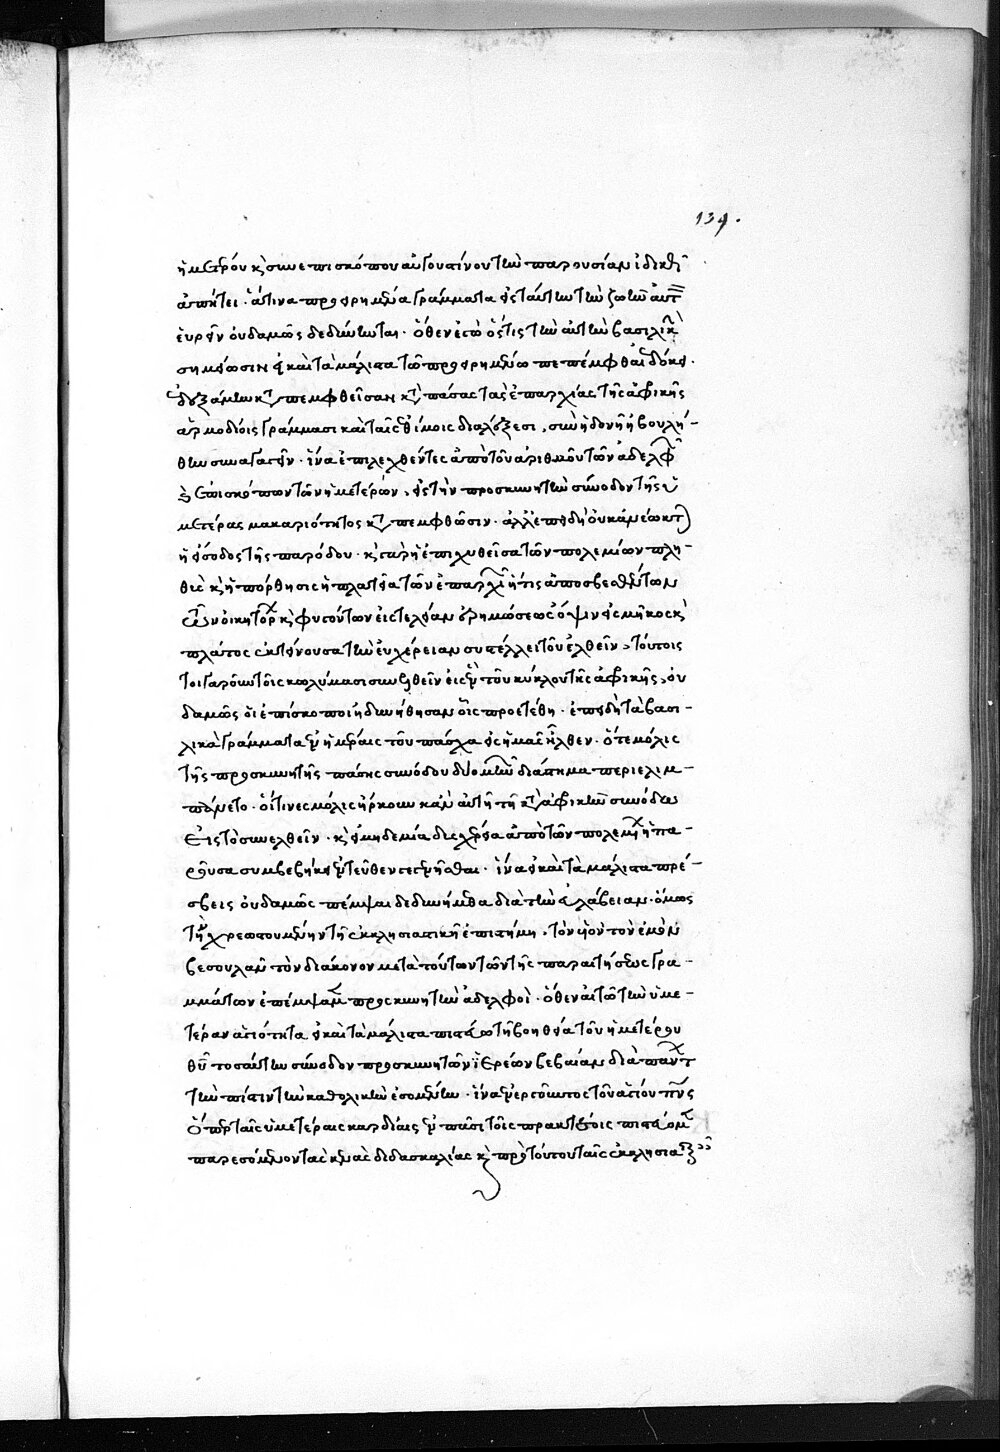 139.
ἡμετέρου καὶ συνεπισκόπου αὐγουστίνου τὴν παρουσίαν ἰδικῶς
ἀπῄτει. ἅτινα προειρημένα γράμματα εἰς ταύτην τὴν ζωὴν αὐτὸν
εὑρεῖν οὐδαμῶς δεδύνηται. ὅθεν ἐγὼ ὅστις τὴν αὐτὴν βασιλικὴν
σημείωσιν εἰ καὶ τὰ μάλιστα τῷ προειρημένῳ πεπέμφθαι δόκει.
δεξάμενος καταπεμφθεῖσαν κατὰ πάσας τὰς ἐπαρχίας τῆς ἀφρικῆς
ἁρμοδίοις γράμμασι καὶ ταῖς ἐθίμοις διαλέξεσι, σύνοδον ἠβουλή-
θην συναγαγεῖν. ἵνα ἐπιλεχθέντες ἀπὸ τοῦ ἀριθμοῦ τῶν ἀδελφῶν
καὶ ἐπισκόπων τῶν ἡμετέρων, εἰς τὴν προσκυνητὴν σύνοδον τῆς ὑ
μετέρας μακαριότητος καταπεμφθῶσιν. ἀλλ' ἐπειδὴ
ἡ εἴσοδος τῆς παρόδου. καὶ γὰρ ἡ ἐπιχυθεῖσα τῶν πολεμίων πλη-
θὺς καὶ ἡ πόρθησις ἡ πλατεῖα τῶν ἐπαρχιῶν ἥτις ἀποσβεσθέντων
τῶν οἰκητόρων καὶ φυγόντων εἰς τελείαν ἐρημώσεως ὄψιν εἰς μῆκος καὶ
πλάτος ἐκτείνουσα τὴν εὐχέρειαν συστέλλει τοῦ ἐλθεῖν, τούτοις
τοιγαροῦν τοῖς κωλύμασι συνελθεῖν εἰς ἓν τοῦ κύκλου τῆς ἀφρικῆς, οὐ
δαμῶς οἱ ἐπίσκοποι ἠδυνήθησαν οἷς προετέθη. ἐπειδὴ τὰ βασι-
λικὰ γράμματα ἐν ἡμέραις τοῦ πάσχα εἰς ἡμᾶς ἦλθεν. ὅτε μόλις
τῆς προσκυνητῆς πάσης συνόδου δύο μηνῶν διάστημα περιελιμ-
πάνετο. οἵτινες μόλις ἤρκουν κἂν αὐτῇ τῇ κατὰ ἀφρικὴν συνόδῳ
εἰς τὸ συνελθεῖν. καὶ εἰ μηδεμία δυσχέρεια ἀπὸ τῶν πολεμίων ἡ πα-
ροῦσα συμβεβήκει ἐντεῦθεν γεγενῆσθαι. ἵνα εἰ καὶ τὰ μάλιστα πρέ-
σβεις οὐδαμῶς πέμψαι δεδυνήμεθα διὰ τὴν εὐλάβειαν. ὅμως
τῇ χρεωστουμένῃ τῆς ἐκκλησιαστικῆς ἐπιστήμῃ, τὸν υἱὸν τὸν ἐμὸν
βεσουλᾶν τὸν διάκονον μετὰ τούτων τῶν τῆς παραιτήσεως γρα-
μμάτων ἐπέμψαμεν προσκυνητὴν ἀδελφοί. ὅθεν αἰτῶ τὴν ὑμε-
τέραν ἁγιότητα εἰ καὶ τὰ μάλιστα πιστεύω τῇ βοηθείᾳ τοῦ ἡμετέρου
θεοῦ τοσαύτην σύνοδον προσκυνητῶν ἱερέων βεβαίαν διὰ πάντων
τὴν πίστιν τὴν καθολικὴν ἐσομένην. ἵνα ἐνεργοῦντος τοῦ ἁγίου πνεύματος
ὅπερ ταῖς ὑμετέραις καρδίαις ἐν πᾶσι τοῖς πρακτέοις πιστεύομεν
παρεσόμενον τὰς καινὰς διδασκαλίας καὶ πρὸ τούτου ταῖς ἐκκλησιαστικαῖς